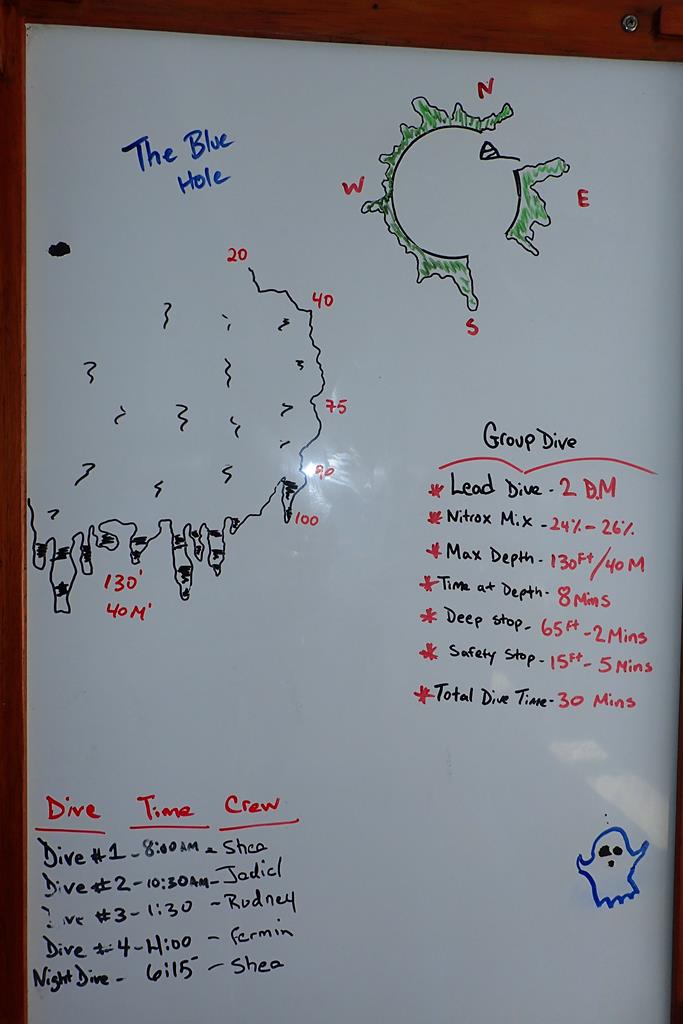 The Blue
Hole
N
W
E
S
20
40
75
90
100
130'
40M'
Group Dive
* Lead Dive - 2 D.M
* Nitrox Mix - 24% - 26%
* Max Depth - 130Ft/40M
* Time at Depth - 8 Mins
* Deep Stop - 65Ft - 2 Mins
* Safety Stop - 15Ft - 5 Mins
* Total Dive Time - 30 Mins
Dive Time Crew
Dive #1 - 8:00AM - Shea
Dive #2 - 10:30AM - Jadiel
Dive #3 - 1:30 - Rudney
Dive #4 - 4:00 - Fermin
Night Dive - 6:15 - Shea